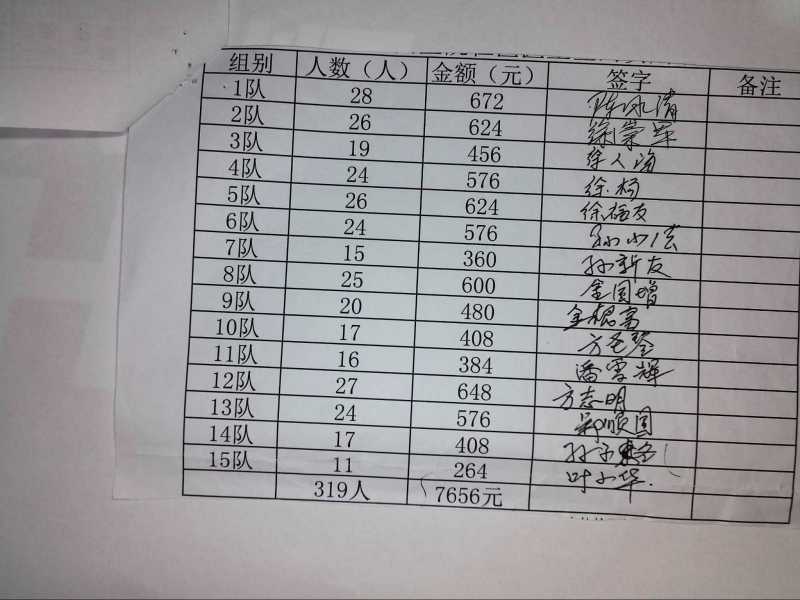 组别 人数（人） 金额（元） 签字 备注
1队 28 672
2队 26 624 徐崇军
3队 19 456 徐人海
4队 24 576 徐杨
5队 26 624 徐福友
6队 24 576
7队 15 360 孙新友
8队 25 600 金国增
9队 20 480
10队 17 408
11队 16 384 潘雪辉
12队 27 648 方志明
13队 24 576 郭顺国
14队 17 408
15队 11 264 叶小华
319人 7656元